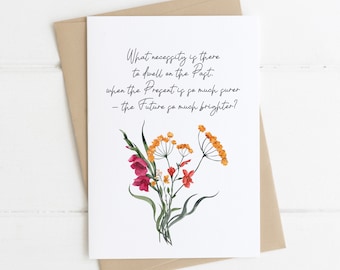 What necessity is there
to dwell on the Past,
when the Present is so much surer
– the Future so much brighter?